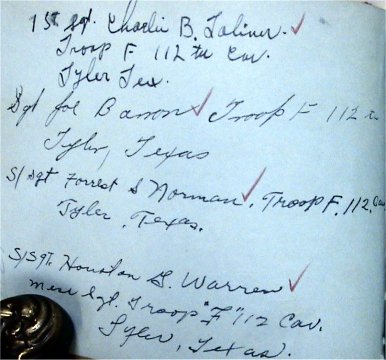 1st Sgt. Charlie B. Toliner.
Troop F 112 th Cav.
Tyler Tex.
Sgt Joe Barron Troop F 112 th
Tyler, Texas
S/Sgt Forrest S Norman, Troop F. 112, Cav
Tyler, Texas.
S/Sgt. Houston G. Warren
Mess Sgt. Troop "F" 112 Cav.
Tyler, Texas.